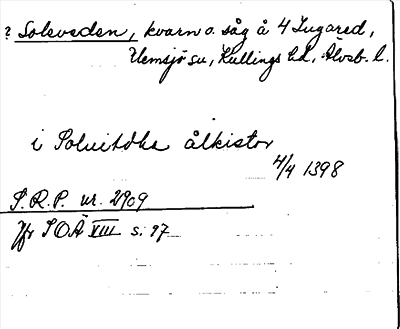 ? Solveden, kvarn o. såg å 4 Lugared,
Hemsjö sn, Kullings hd, Älvsb. l.
i Solvitdha ålkistor
4/4 1398
S.R.P. nr. 2909
Jfr SOÄ VIII s. 97